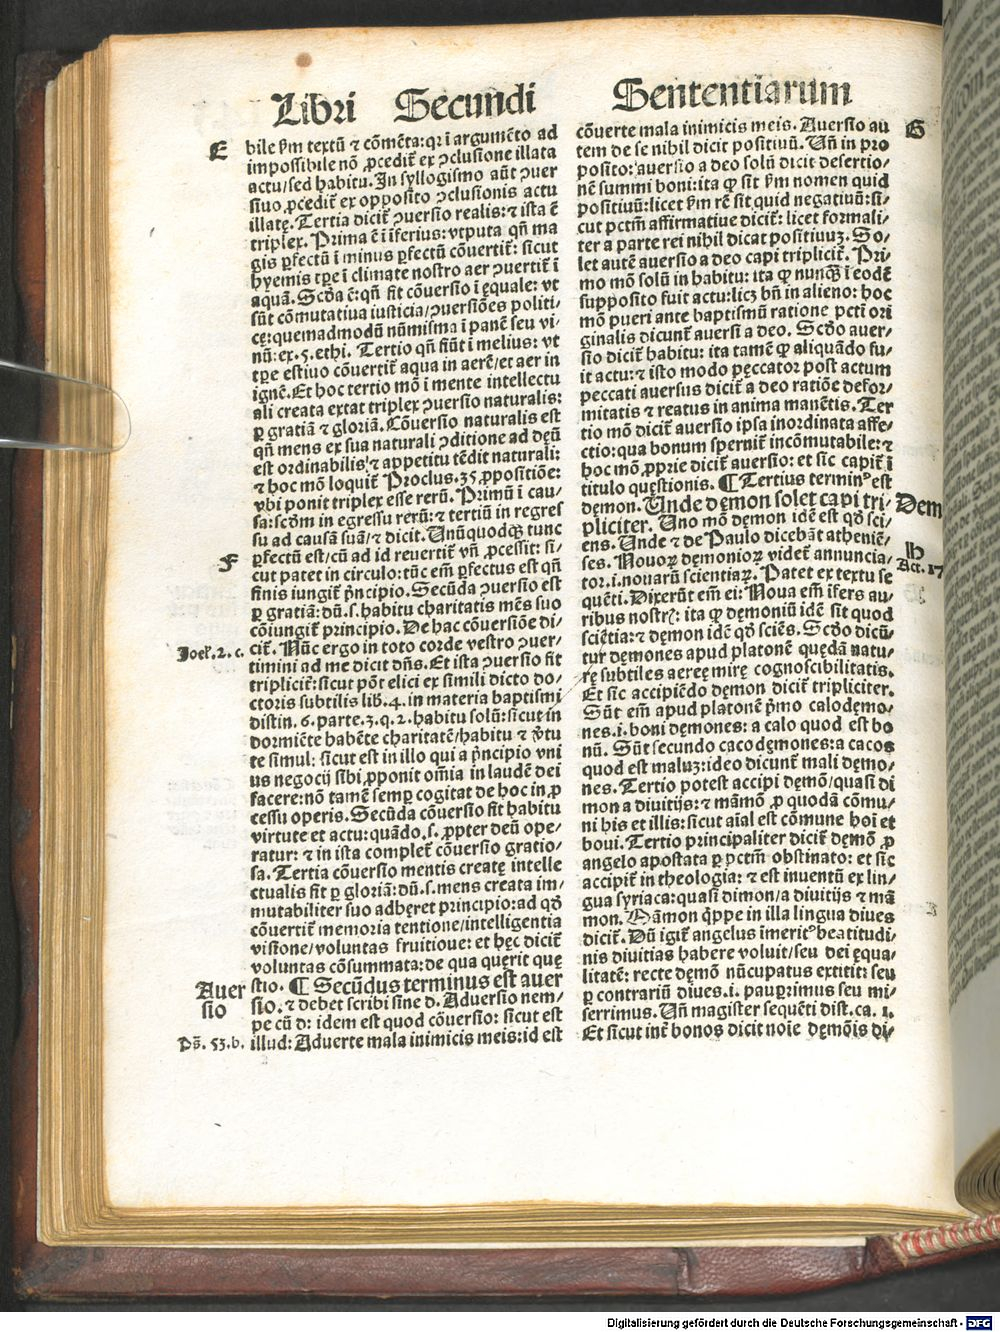 Libri Secundi Sententiarum
E
bile ẜm textū ⁊ cōmēta: qꝛ ī argumēto ad
impossibile nō ꝓcedit̄ ex ꝯclusione illata
actu/sed habitu. In syllogismo aūt ꝯuer
siuo ꝓcedit̄ ex opposito ꝯclusionis actu
illatę. Tertia dicit̄ ꝯuersio realis: ⁊ ista ē
triplex. Prima ē ī īferius: vtputa qn̄ ma
gis ꝑfectū ī minus ꝑfectū cōuertit̄: sicut
hyemis tꝑe ī climate nostro aer ꝯuertit̄ ī
aquā. Scḋa ē: qn̄ fit cōuersio ī ęquale: vt
sūt cōmutatiua iusticia/ꝯuersiōes politi⸗
cę: quemadmodū nūmisma ī panē seu vi⸗
nū: ex .5. ethi. Tertio qn̄ fiūt ī melius: vt
tꝑe estiuo cōuertit̄ aqua in aerē/et aer in
ignē. Et hoc tertio mō ī mente intellectu
ali creata extat triplex ꝯuersio naturalis:
ꝑ gratiā ⁊ gloriā. Cōuersio naturalis est
qn̄ mens ex sua naturali ꝯditione ad deū
est ordinabilis/⁊ appetitu tēdit naturali:
⁊ hoc mō loquit̄ Proclus .35. ꝓpositiōe:
vbi ponit triplex esse rerū. Primū ī cau⸗
sa: scḋm in egressu rerū: ⁊ tertiū in regres
su ad causā suā/⁊ dicit. Unūquodqꝫ tunc
F
ꝑfectū est/cū ad id reuertit̄ vn̄ ꝓcessit: si⸗
cut patet in circulo: tūc em̄ ꝑfectus est qn̄
finis iungit̄ pͥncipio. Secūda ꝯuersio est
ꝑ gratiā: dū .s. habitu charitatis mēs suo
cōiungit̄ principio. De hac cōuersiōe di⸗
Joel̄. 2. c.
cit̄. Nūc ergo in toto corde vestro ꝯuer⸗
timini ad me dicit dn̄s. Et ista ꝯuersio fit
triplicit̄: sicut pōt elici ex simili dicto do⸗
ctoris subtilis lib̄. 4. in materia baptismi
distin. 6. parte. 3. q. 2. habitu solū: sicut in
dormiēte habēte charitatē/habitu ⁊ v̄tu
te simul: sicut est in illo qui a pͥncipio vni
us negocij sibi ꝓponit om̄ia in laudē dei
facere: nō tamē semꝑ cogitat de hoc in ꝓ
cessu operis. Secūda cōuersio fit habitu
virtute et actu: quādo .s. ꝓpter deū ope⸗
ratur: ⁊ in ista complet̄ cōuersio gratio⸗
sa. Tertia cōuersio mentis creatę intelle
ctualis fit ꝑ gloriā: dū .s. mens creata im⸗
mutabiliter suo adhęret principio: ad qḋ
cōuertit̄ memoria tentione/intelligentia
visione/voluntas fruitioue: et hęc dicit̄
voluntas cōsummata: de qua querit quę
Auer
sio
stio. ¶ Secūdus terminus est auer
sio. ⁊ debet scribi sine d. Aduersio nem⸗
pe cū d: idem est quod cōuersio: sicut est
Ps̄. 53. b.
illud: Aduerte mala inimicis meis: id est
cōuerte mala inimicis meis. Auersio au
G
tem de se nihil dicit positiuū. Un̄ in pro
posito: auersio a deo solū dicit desertio⸗
nē summi boni: ita ꝙ sit ẜm nomen quid
positiuū: licet ẜm rē sit quid negatiuū: si⸗
cut pctm̄ affirmatiue dicit̄: licet formali⸗
ter a parte rei nihil dicat positiuuꝫ. So⸗
let autē auersio a deo capi triplicit̄. Pri⸗
mo mō solū in habitu: ita ꝙ nunqꝫ̄ ī eodē
supposito fuit actu: licꝫ bn̄ in alieno: hoc
mō pueri ante baptismū ratione pcti ori
ginalis dicunt̄ auersi a deo. Scḋo auer⸗
sio dicit̄ habitu: ita tamē ꝙ aliquādo fu⸗
it actu: ⁊ isto modo peccator post actum
peccati auersus dicit̄ a deo ratiōe defor⸗
mitatis ⁊ reatus in anima manētis. Ter
tio mō dicit̄ auersio ipsa inordinata affe⸗
ctio: qua bonum spernit̄ incōmutabile: ⁊
hoc mō ꝓprie dicit̄ auersio: et sic capit̄ ī
titulo quęstionis. ¶ Tertius terminꝰ est
Dem
dęmon. Unde dęmon solet capi tri⸗
pliciter. Uno mō dęmon idē est qḋ sci⸗
H
ens. Unde ⁊ de Paulo dicebāt atheniē⸗
Act. 17
ses. Nouoꝝ demonioꝝ videt̄ annuncia⸗
tor .i. nouarū scientiaꝝ. Patet ex textu se
quēti. Dixerūt em̄ ei: Noua em̄ ifers au⸗
ribus nostrꝭ: ita ꝙ demoniū idē sit quod
sciētia: ⁊ dęmon idē qḋ sciēs. Scḋo dicū⸗
tur dęmones apud platonē quędā natu⸗
rę subtiles aereę mirę cognoscibilitatis.
Et sic accipiēdo dęmon dicit̄ tripliciter.
Sūt em̄ apud platonē pͥmo calodęmo⸗
nes .i. boni dęmones: a calo quod est bo
nū. Sūt secundo cacodęmones: a cacos
quod est maluꝫ: ideo dicunt̄ mali dęmo⸗
nes. Tertio potest accipi dęmō/quasi di
mon a diuitijs: ⁊ māmō ꝓ quodā cōmu⸗
ni his et illis: sicut aīal est cōmune hoī et
boui. Tertio principaliter dicit̄ dęmō ꝓ
angelo apostata ꝑ pctm̄ obstinato: et sic
accipit̄ in theologia: ⁊ est inuentū ex lin⸗
gua syriaca: quasi dimon/a diuitijs ⁊ mā
mon. Māmon qͥppe in illa lingua diues
dicit̄. Dū igit̄ angelus īmeritꝰ beatitudi⸗
nis diuitias habere voluit/seu dei ęqua⸗
litatē: recte dęmō nūcupatus extitit: seu
ꝑ contrariū diues .i. pauꝑrimus seu mi⸗
serrimus. Un̄ magister sequēti dist. ca. 1.
Et sicut int̄ bonos dicit noīe dęmōis di⸗
Digitalisierung gefördert durch die Deutsche Forschungsgemeinschaft - DFG